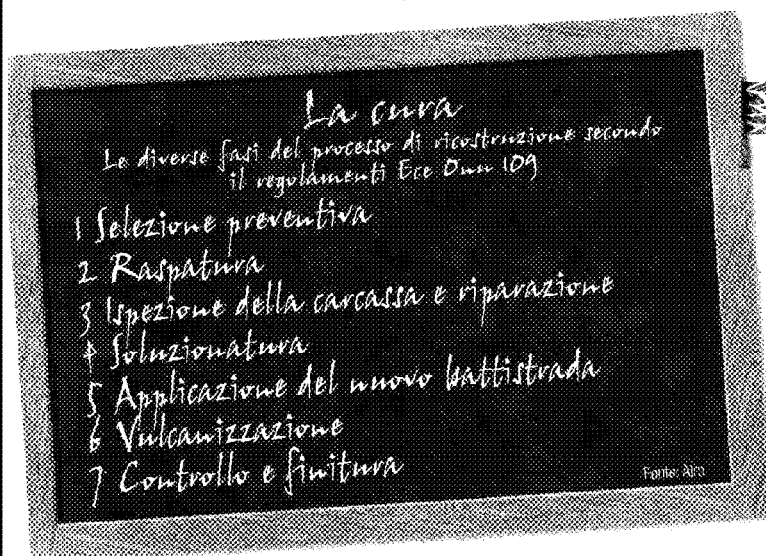 La cura
Le diverse fasi del processo di ricostruzione secondo
il regolamenti Ece Onu 109
1 Selezione preventiva
2 Raspatura
3 Ispezione della carcassa e riparazione
4 Soluzionatura
5 Applicazione del nuovo battistrada
6 Vulcanizzazione
7 Controllo e finitura
Fonte: Airp